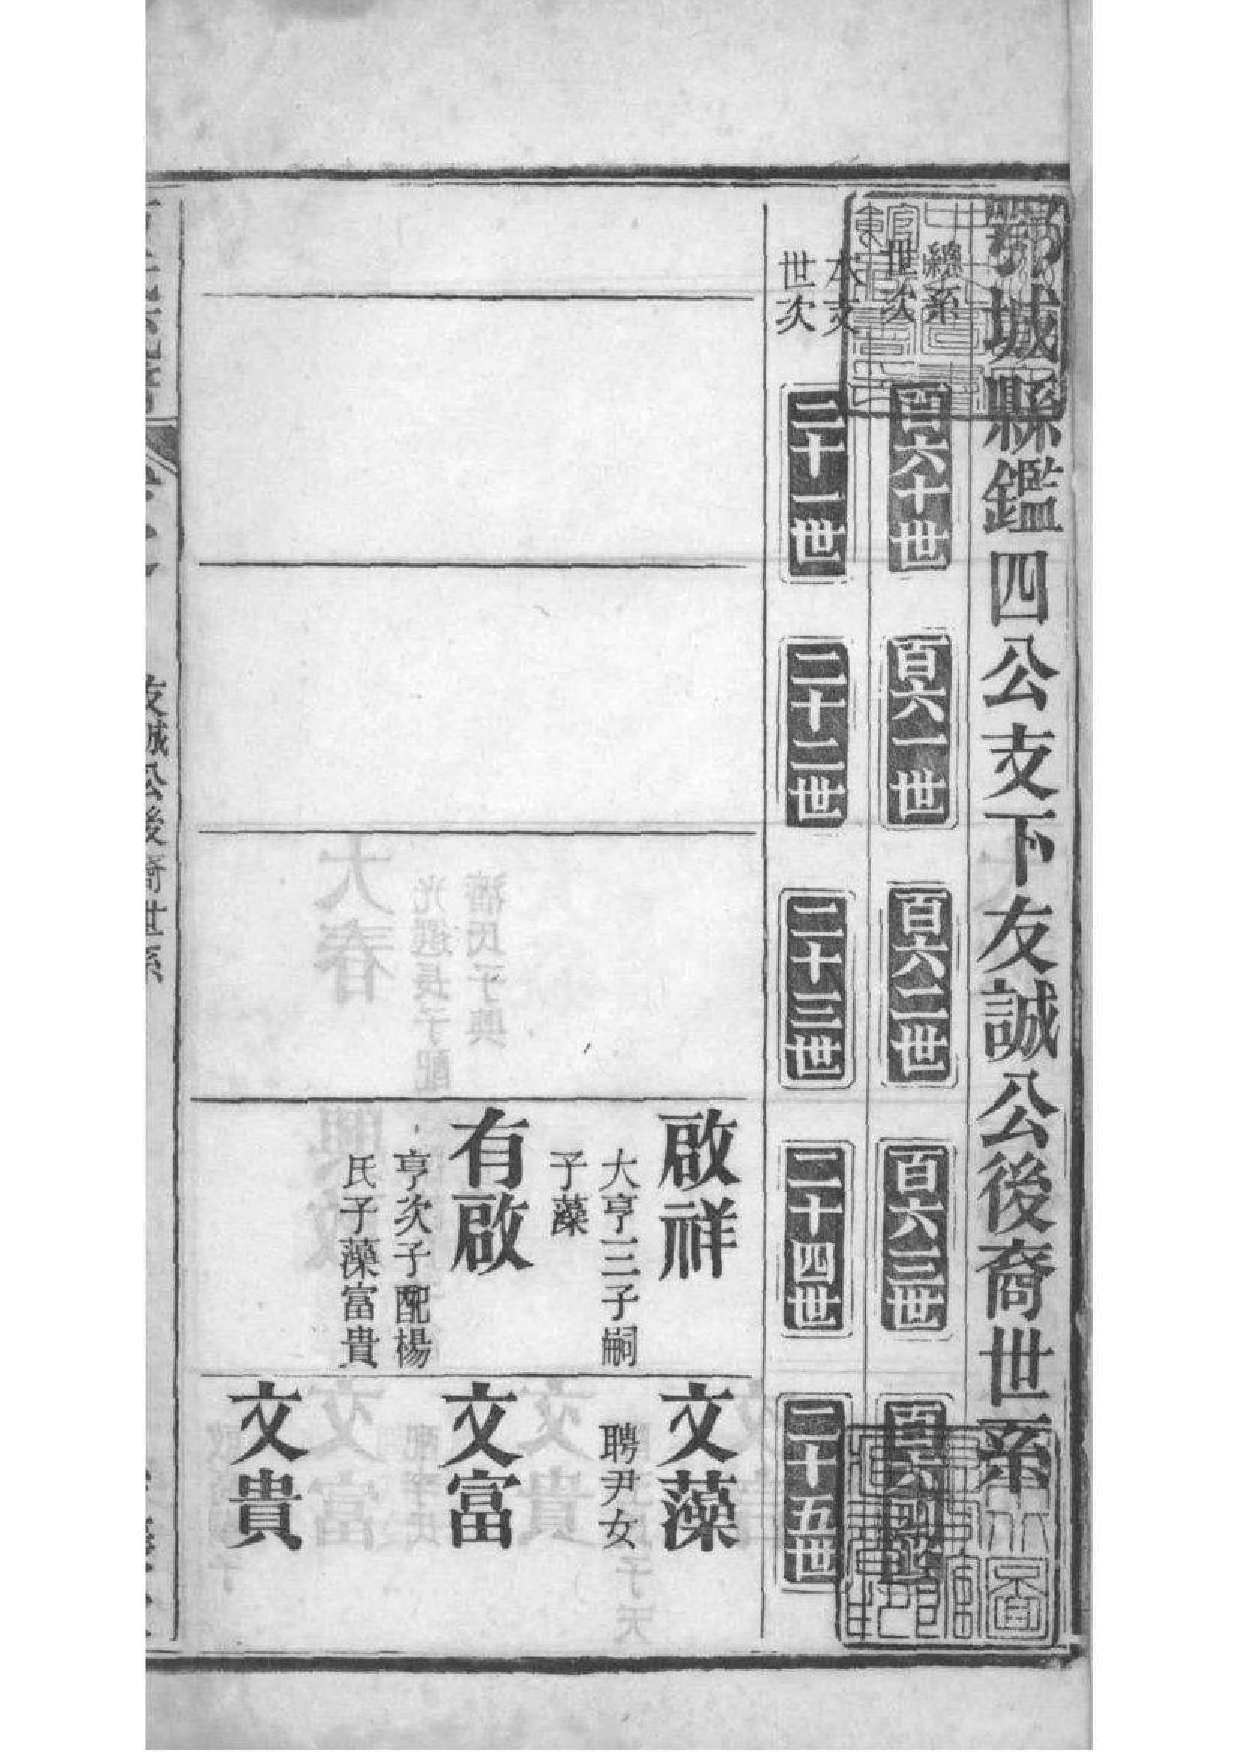 城縣鑑四公支下友誠公後裔世系
總系
世次
百六十世
百六一世
百六二世
百六三世
百六四世
本支
世次
二十一世
二十二世
二十三世
二十四世
二十五世
啟祥
大亨三子嗣
子藻
有啟
亨次子配楊
氏子藻富貴
文藻
聘尹女
文富
文貴
友誠公後裔世系